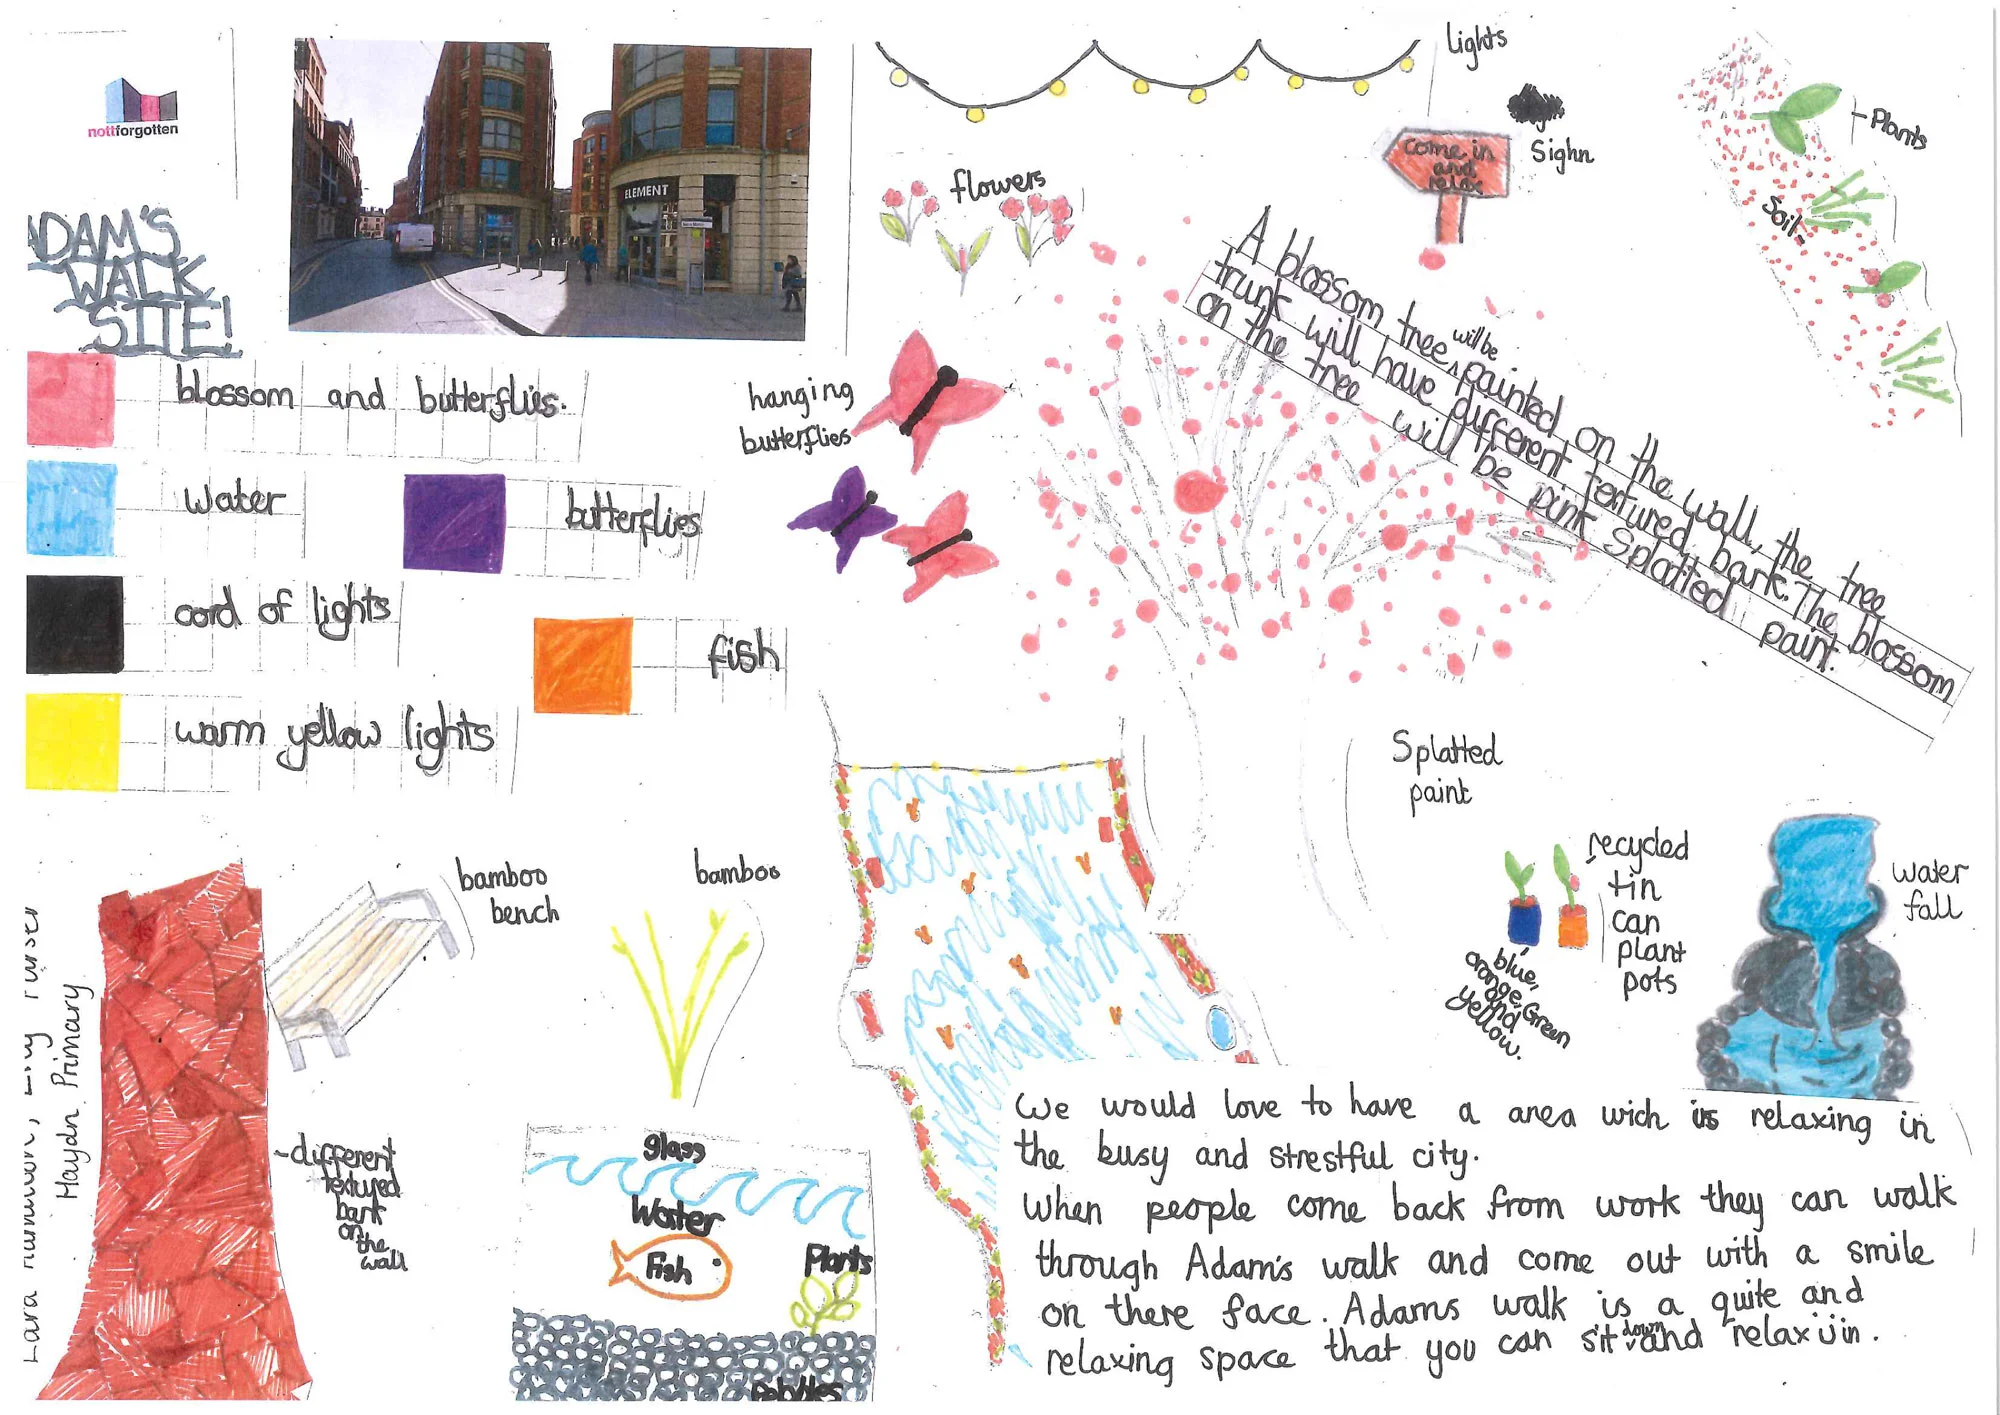 nottforgotten
ADAM'S
WALK
SITE!
ELEMENT
blossom and butterflies.
water
butterflies
cord of lights
fish
warm yellow lights
lights
Sighn
come in
and
relax
flowers
Plants
Soil
hanging
butterflies
A blossom tree will be painted on the wall, the tree
trunk will have different textured bark. The blossom
on the tree will be pink splatted paint.
Splatted
paint
recycled
tin
can
plant
pots
blue,
orange, Green
and
yellow.
water
fall
bamboo
bench
bamboo
different
textured
bark
on
the
wall
Haydn Primary
glass
Water
Fish
Plants
Pebbles
We would love to have a area wich is relaxing in
the busy and strestful city.
When people come back from work they can walk
through Adam's walk and come out with a smile
on there face. Adams walk is a quite and
relaxing space that you can sit down and relax in.